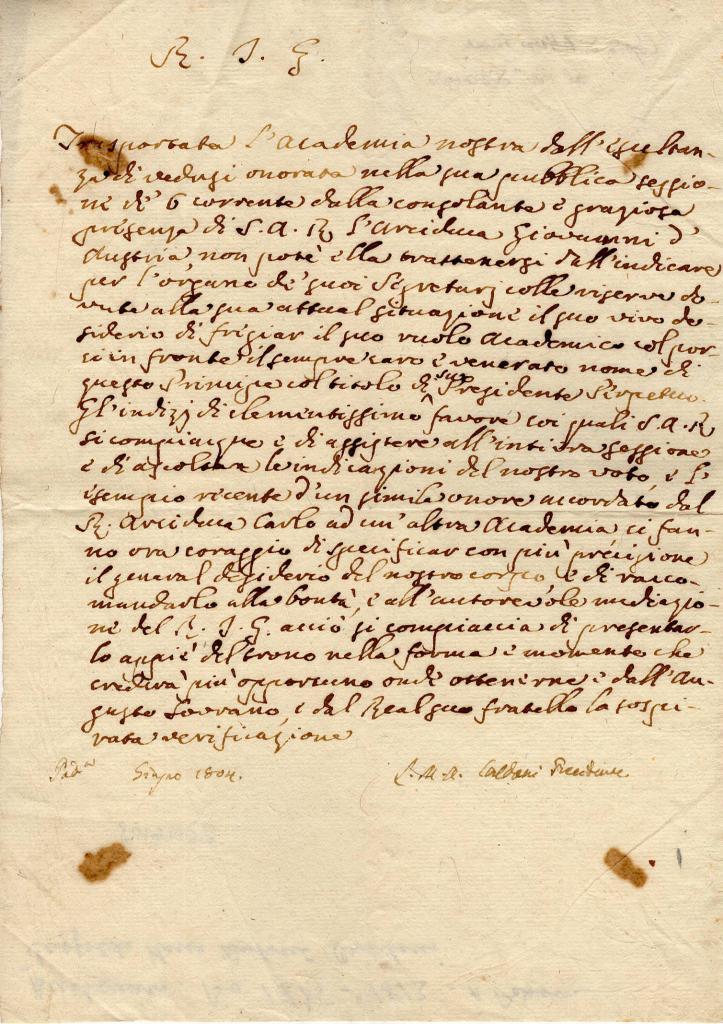 R. I. G.
Trasportata l'Academia nostra dall'esultan-
za di vedersi onorata nella sua pubblica sessio-
ne de' 6 corrente dalla consolante e graziosa
presenza di S. A. R. l'Arciduca Giovanni d'
Austria, non potè ella trattenersi dall'indicare
per l'organo de' suoi Segretarj colle riserve do-
vute alla sua attual situazione il suo vivo de-
siderio di fregiar il suo ruolo Academico col por-
si in fronte il sempre caro e venerato nome di
questo Principe col titolo di suo Presidente Perpetuo.
Gl'indizj di clementissimo favore coi quali S. A. R.
si compiacque e di assistere all'intiera sessione
e di ascoltare le indicazioni del nostro voto, e l'
esempio recente d'un simile onore accordato dal
R. Arciduca Carlo ad un'altra Academia ci fan-
no ora coraggio di specificar con più precisione
il general desiderio del nostro corpo, e di racco-
mandarlo alla bontà, e all'autorevole mediazio-
ne del R. I. G. acciò si compiaccia di presentar-
lo appiè del trono nella forma e momento che
crederà più opportuno onde ottenerne e dall'Au-
gusto Sovrano, e dal Real suo fratello la sospi-
rata verificazione
Pad.a Giugno 1804. L. M. A. Caldani Presidente